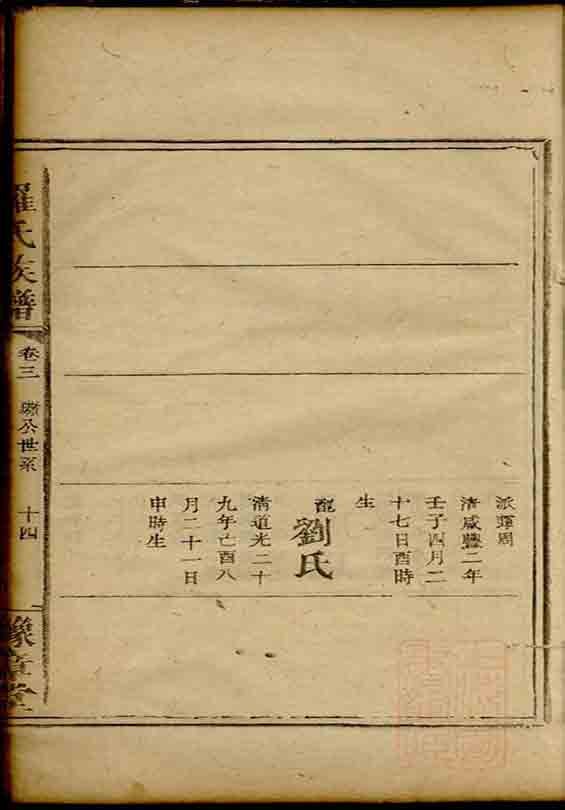 派蓮周
清咸豐二年
壬子四月二
十七日酉時
生
配劉氏
清道光二十
九年己酉八
月二十一日
申時生
羅氏族譜
卷三
公世系
十四
豫章堂